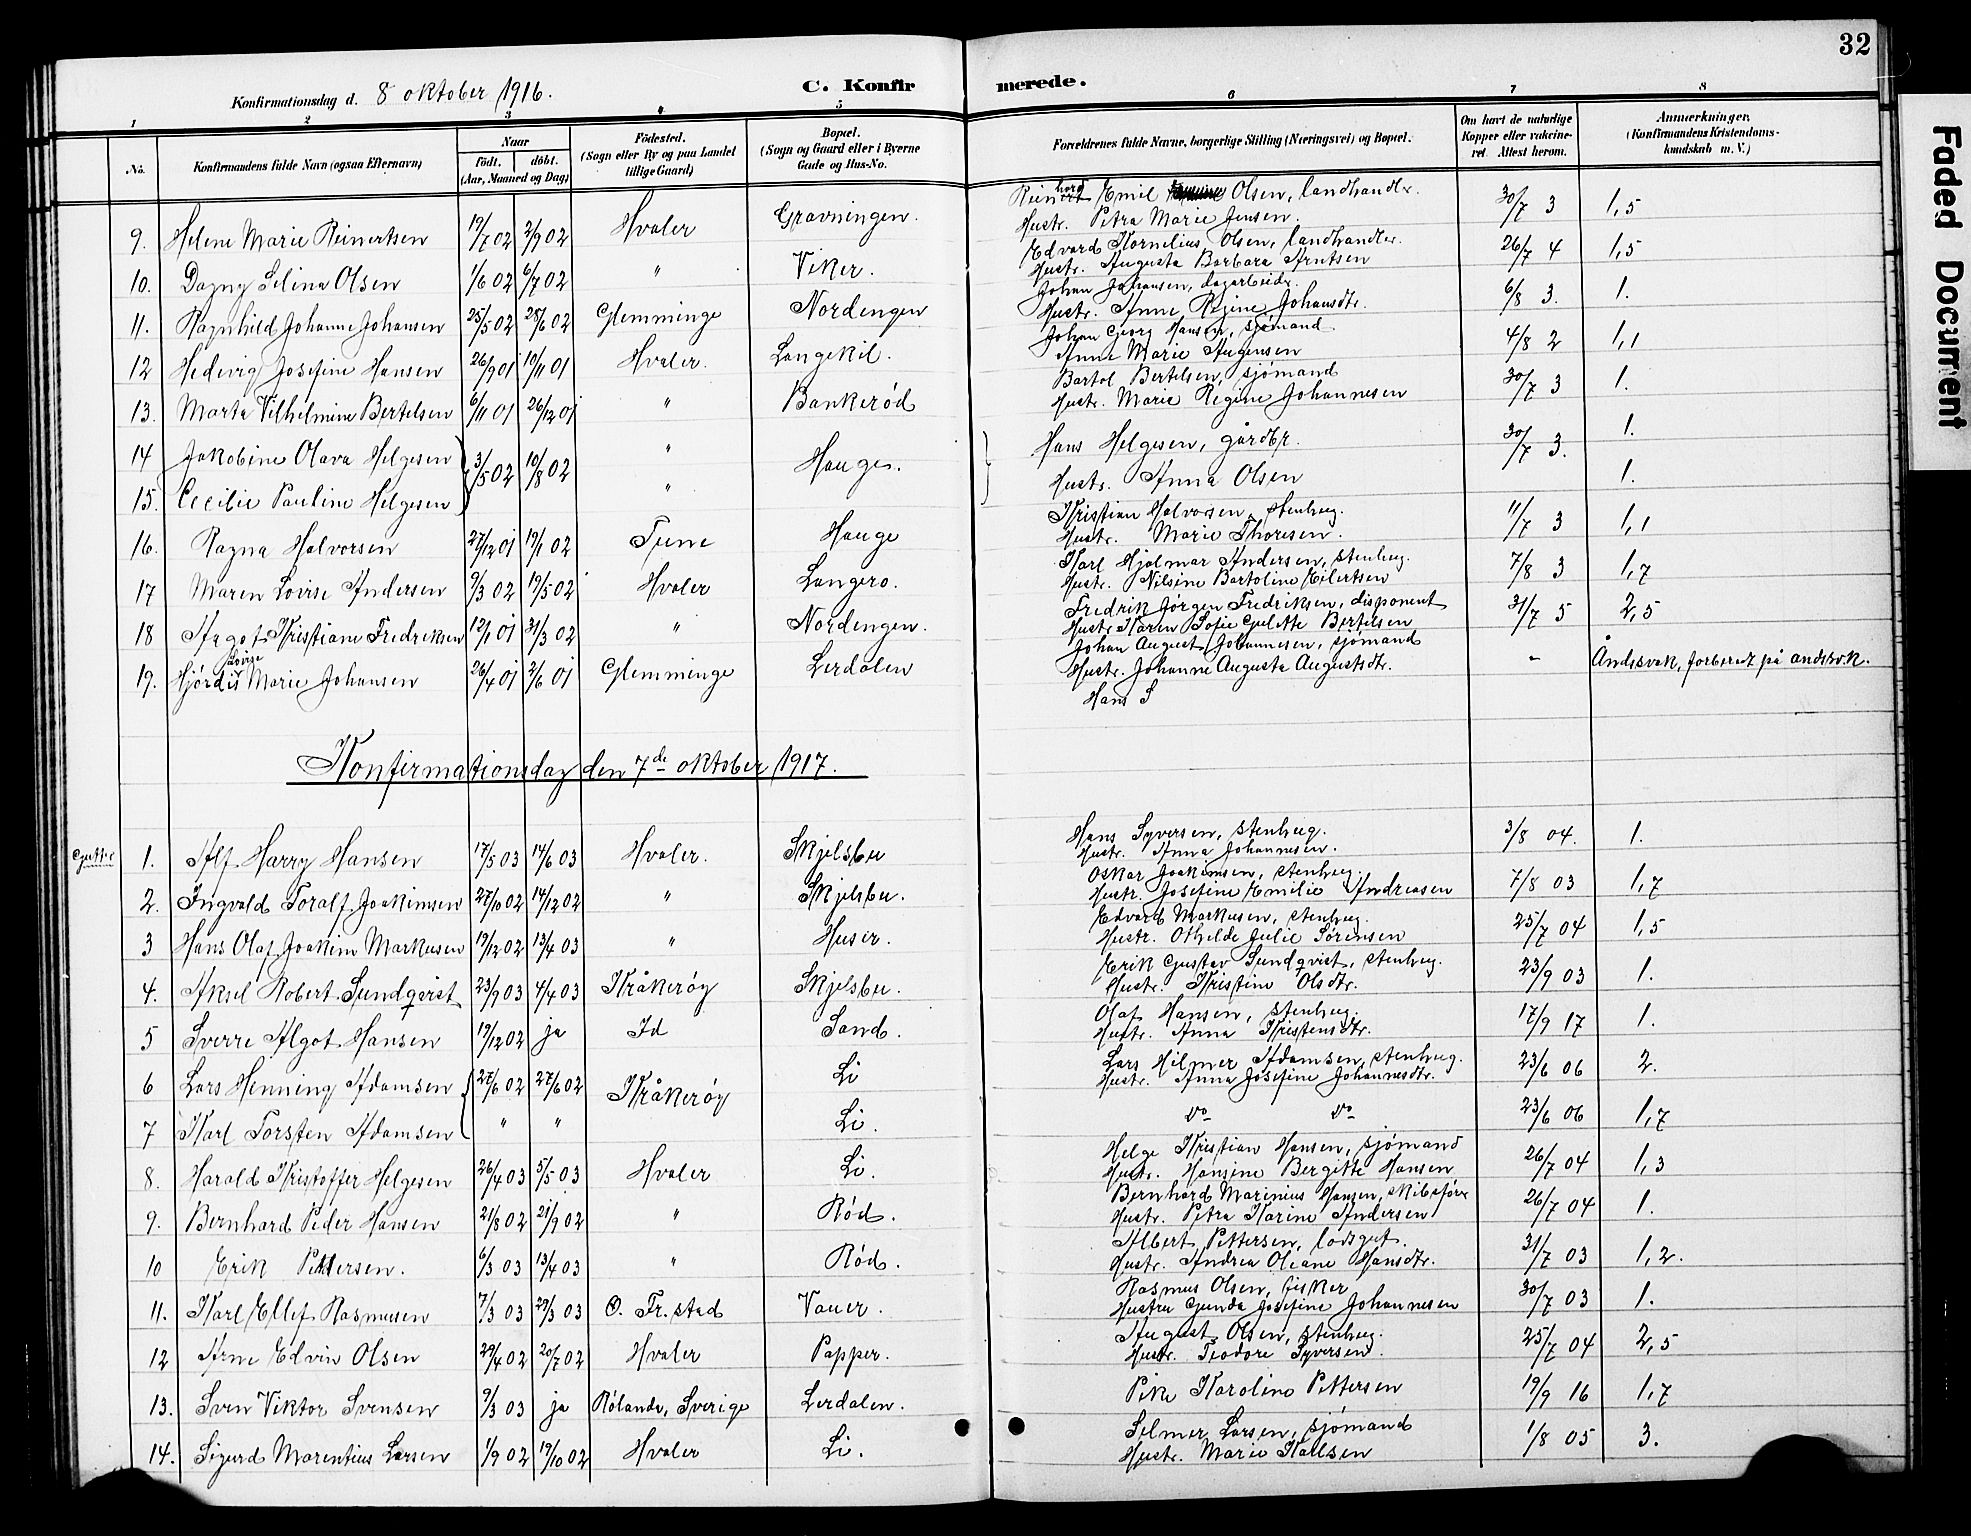 32
Faded Document
Konfirmationsdag d. 8 oktober 1916.
C. Konfirmerede.
1 2 3 4 5 6 7 8
No. | Konfirmandens fulde Navn (ogsaa Efternavn) | Naar født. døbt. (Aar, Maaned og Dag) | Födested. (Sogn eller By og paa Landet tillige Gaard) | Bopæl. (Sogn og Gaard eller i Byerne Gade og Hus-No. | Forældrenes fulde Navne, borgerlige Stilling (Næringsvei) og Bopæl. | Om havt de naturlige Kopper eller vakcineret. Attest herom. | Anmærkninger. (Konfirmandens Kristendomskundskab m. V.)
9. Helene Marie Reinertsen 19/7 02 2/9 02 Hvaler Gravningen. Reinhard Emil Olsen, landhandlr. Hustr. Petra Marie Jensen. 30/7 3 1,5
10. Dagny Selina Olsen 1/6 02 6/7 02 " Viker. Edvard Kornelius Olsen, landhandler. Hustr. Augusta Barbara Arntsen 26/7 4 1,5
11. Ragnhild Johanne Johansen 25/5 02 28/6 02 Glemminge Nordengen Johan Johansen, dagarbeidr. Hustr. Anne Regine Johansdtr. 6/8 3. 1.
12 Hedevig Josefine Hansen 26/9 01 10/11 01 Hvaler. Langekil. Johan Georg Hansen, sjømand Anne Marie Augensen 4/8 2 1,1
13. Marta Vilhelmine Bertelsen 6/11 01 26/12 01 " Bankerød Bartol Bertelsen, sjømand Hustr. Marie Regine Johannesen 30/7 3 1.
14 Jakobine Olava Helgesen 3/5 02 10/8 02 " Hauge. Hans Helgesen, gårdbr. 30/7 3. 1.
15. Cecilie Pauline Helgesen " Hustr. Anna Olsen 1.
16. Ragna Halvorsen 27/12 01 19/1 02 Tune Hauge Kristian Halvorsen, stenhug. Hustr. Marie Thoresen. 11/7 3 1,1
17 Maren Lovise Andersen 9/3 02 19/5 02 Hvaler Langero. Karl Hjalmar Andersen, stenhug. Hustr. Nilsine Bartoline Eilertsen 7/8 3 1,7
18 Aagot Kristiane Fredriksen 12/1 01 31/3 02 " Nordengen. Fredrik Jørgen Fredriksen, disponent Hustr. Karen Sofie Gulette Bertelsen 31/7 5 2,5
19. Hjørdis Lovise Marie Johansen 26/4 01 2/6 01 Glemminge Lerdalen Johan August Johannesen, sjømand Hustr. Johanne Augusta Augustsdtr. - Åndssvak, forberedt på andssv.k.
Hans S
Konfirmationsdag den 7de oktober 1917.
Gutter 1. Alf Harry Hansen 17/5 03 14/6 03 Hvaler. Skjelsbu Hans Syversen, stenhug. Hustr. Anna Johannesen. 3/8 04. 1.
2. Ingvald Toralf Joakimsen 27/10 02 14/12 02 " Skjelsbu. Oskar Joakimsen, stenhug. Hustr. Josefine Emilie Andreasen 7/8 03 1,7
3 Hans Olaf Joakim Markusen 19/12 02 13/4 03 " Huser. Edvard Markusen, stenhug. Hustr. Othilde Julie Sørensen 25/7 04 1,5
4. Aksel Robert Sundqvist 23/9 03 4/4 03 Kråkerøy Skjelsbu. Erik Gustav Sundqvist, stenhug. Hustr. Kristine Olsdtr. 23/9 03 1.
5 Sverre Algot Hansen 19/12 02 ja Id Sand. Olaf Hansen, stenhug. Hustr. Anna Kristensdtr. 17/9 17 1.
6 Lars Henning Adamsen 27/6 02 27/6 02 Kråkerøy Li Lars Hilmer Adamsen, stenhug. Hustr. Anna Josefine Johannesdtr. 23/6 06 2.
7 Karl Torsten Adamsen " " Li. do do 23/6 06 1,7
8. Harald Kristoffer Helgesen 26/4 03 5/5 03 Hvaler Li. Helge Kristian Hansen, sjømand Hustr. Hansine Bergitte Hansen 26/7 04 1,3
9. Bernhard Peder Hansen 21/8 02 21/9 02 " Rød. Bernhard Marinius Hansen, skibsfører Hustr. Petra Karine Andersen 26/7 04 1.
10 Erik Pettersen. 6/3 03 13/4 03 " Rød. Albert Pettersen, lodsgut. Hustr. Andrea Oleane Hansdtr. 31/7 03 1,2.
11. Karl Ellef Rasmusen 7/3 03 29/3 03 Ø. Fr.stad Vauer. Rasmus Olsen, fisker Hustru Gunda Josefine Johannesen 30/7 03 1.
12 Arne Edvin Olsen 29/4 02 20/7 02 Hvaler Papper. August Olsen, stenhug. Hustr. Teodore Syversen. 25/7 04 2,5
13. Sven Viktor Svensen 9/3 03 ja Rølanda, Sverige Lerdalen. Pike Karoline Pettersen 19/9 16 1,7
14. Sigurd Marentius Larsen 1/9 02 19/10 02 Hvaler Li. Selmer Larsen, sjømand Hustr. Marie Karlsen 1/8 05 3.